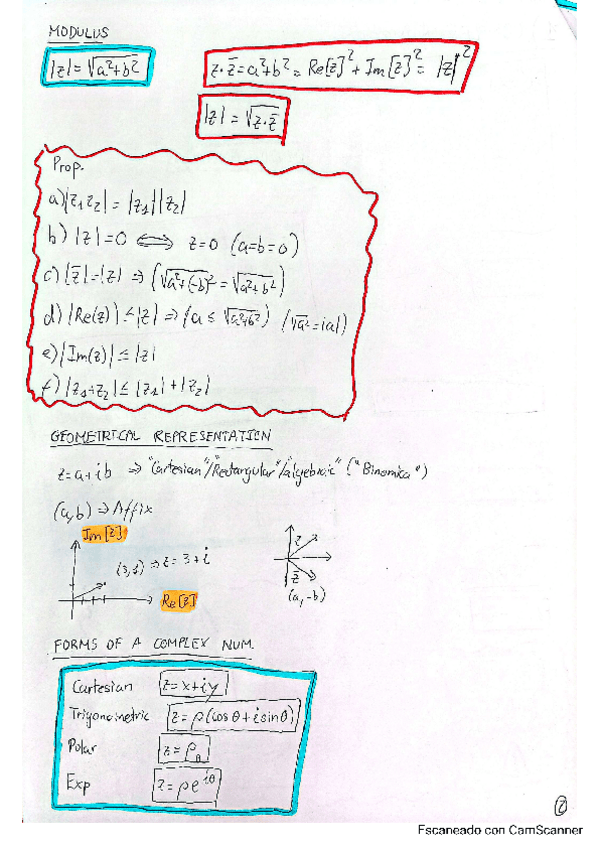 MODULUS
|z| = √a²+b²
z·z̄ = a²+b² = Re[z]² + Im[z]² = |z|²
|z| = √z·z̄
Prop.
a) |z₁z₂| = |z₁||z₂|
b) |z| = 0 ⟺ z=0 (a=b=0)
c) |z̄| = |z| ⇒ (√a²+(-b)² = √a²+b²)
d) |Re(z)| ≤ |z| ⇒ (a ≤ √a²+b²) (√a² = |a|)
e) |Im(z)| ≤ |z|
f) |z₁+z₂| ≤ |z₁| + |z₂|
GEOMETRICAL REPRESENTATION
z = a + ib ⇒ "Cartesian"/"Rectangular"/"algebraic" ("Binomica")
(a,b) ⇒ Affix
Im[z]
(3,1) ⇒ z = 3+i
Re[z]
z
z̄
(a,-b)
FORMS OF A COMPLEX NUM.
Cartesian z = x+iy
Trigonometric z = ρ(cosθ + i sinθ)
Polar z = ρ_θ
Exp z = ρe^{iθ}
2
Escaneado con CamScanner